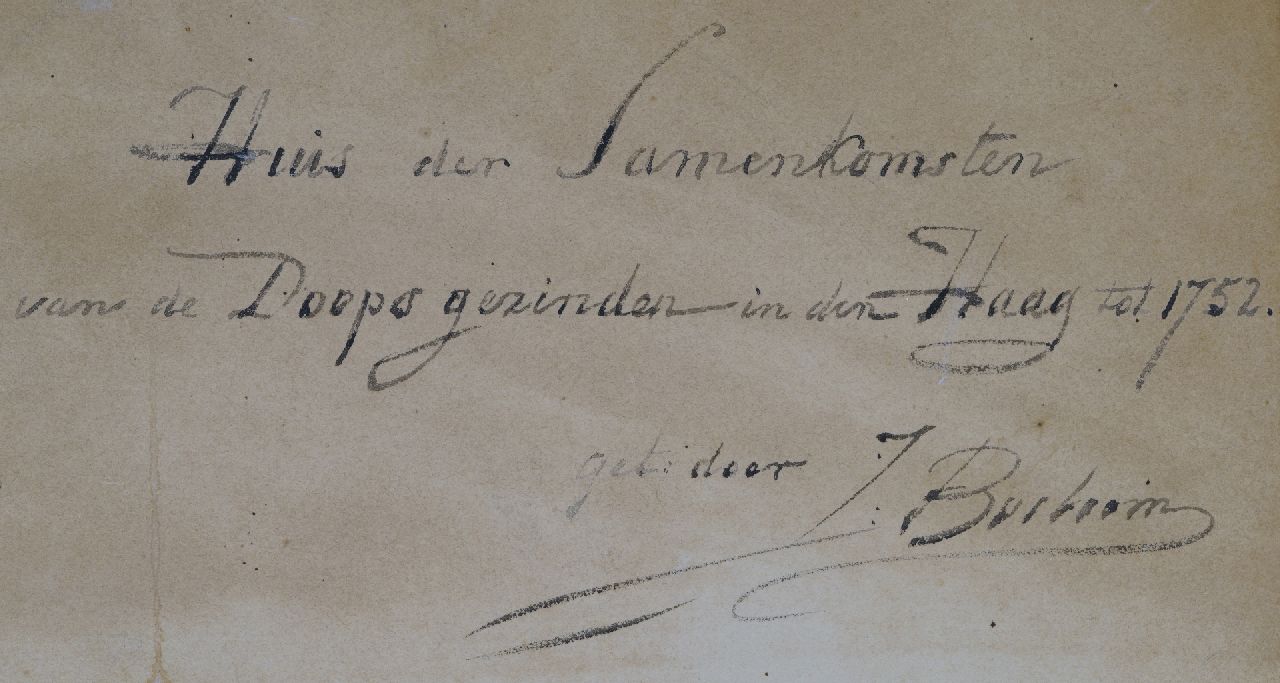 Huis der Samenkomsten
van de Doopsgezinden in den Haag tot 1752.
get: door J. Bosboom